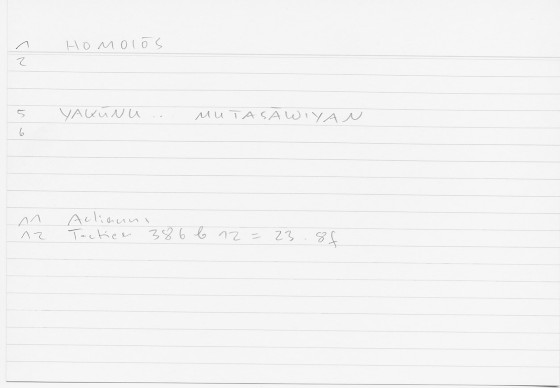 1 HOMOIŌS
2
5 YAKŪNU .. MUTASĀWIYAN
6
11 Aelianus
12 Tactica 386 b 12 = 23. 8f